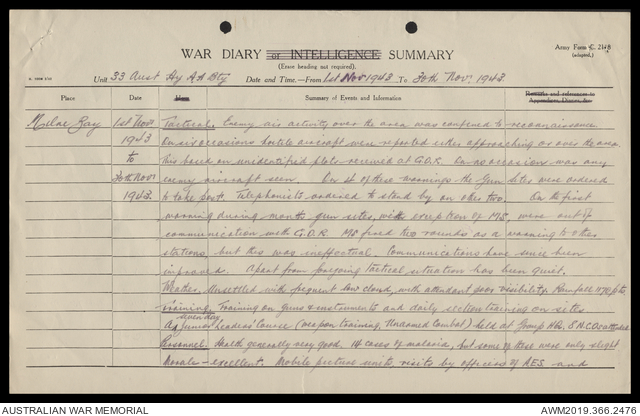 WAR DIARY or INTELLIGENCE SUMMARY
Army Form C. 2118
(adapted.)
(Erase heading not required).
Unit 33 Aust Hy AA Bty Date and Time.—From 1st Nov 1943 To 30th Nov. 1943
Place Date Hour Summary of Events and Information Remarks and references to
Milne Bay 1st Nov. Tactical. Enemy air activity over the area was confined to reconnaissance
1943 On six occasions hostile aircraft were reported either approaching or over the area.
to This based on unidentified plots received at G.O.R. On no occasion was any
30th Nov. enemy aircraft seen. On 4 of these warnings the Gun Sites were ordered
1943. to take post. Telephonists ordered to stand by on other two. On the first
warning during month gun sites, with exception of M5, were out of
communication with G.O.R. M5 fired two rounds as a warning to other
stations, but this was ineffectual. Communications have since been
improved. Apart from foregoing Tactical situation has been quiet.
Weather. Unsettled with frequent low cloud, with attendant poor visibility. Rainfall
Training. Training on guns & instruments and daily section training on sites
A junior leaders' Course (weapon training, Unarmed Combat) held at Group HQ. 8 N.C.Os attended
seven day
Personnel. Health generally very good. 14 cases of malaria, but some of these were only slight
Morale - excellent. Mobile picture units, visits by officers of AES. and
AUSTRALIAN WAR MEMORIAL
AWM2019.366.2476